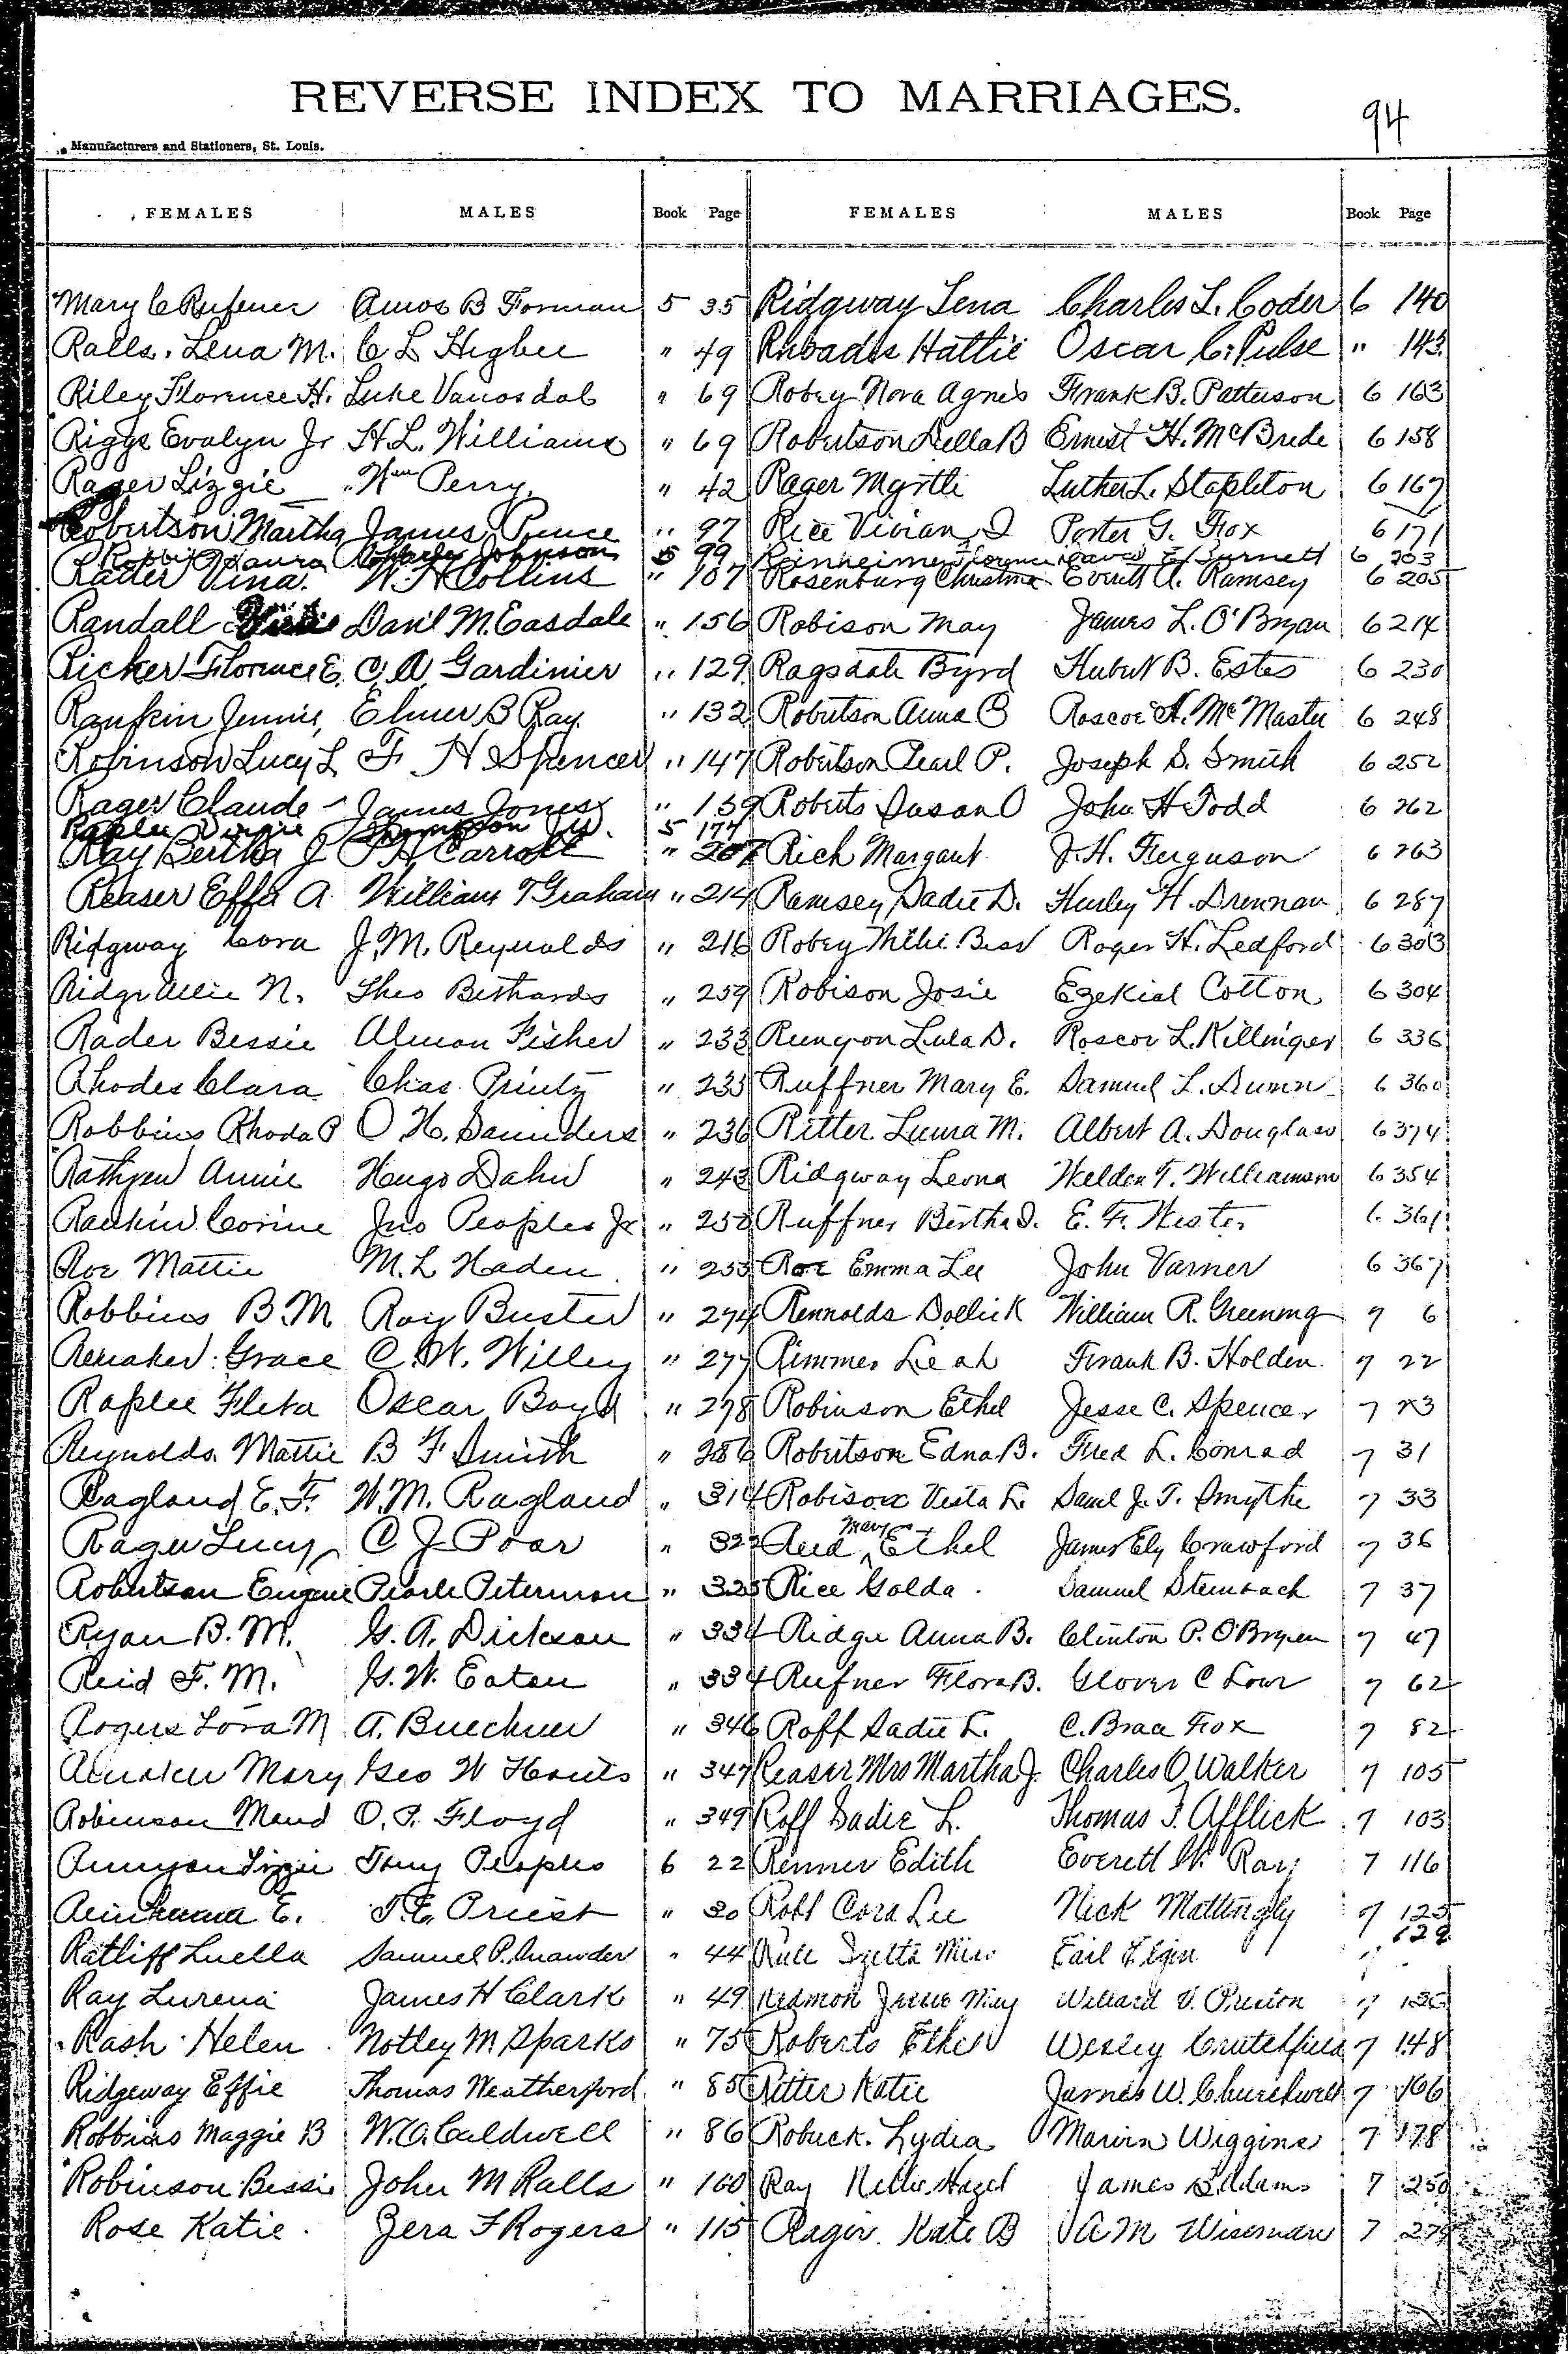 REVERSE INDEX TO MARRIAGES.
94
Manufacturers and Stationers, St. Louis.
FEMALES MALES Book Page FEMALES MALES Book Page
Mary C Rufener Amos B Forman 5 35 Ridgway Lena Charles L. Coder 6 140
Ralls, Lena M. C L Higbee " 49 Rhoades Hattie Oscar C. Pulse " 143
Riley Florence H. Luke Vanosdol " 69 Robey Nora Agnes Frank B. Patterson 6 163
Riggs Evalyn Jr H. L. Williams " 69 Robertson Della B Ernest H. McBride 6 158
Rager Lizzie Wm Perry " 42 Rager Myrtle Luther L. Stapleton 6 167
Robertson Martha James Ponce " 97 Rice Vivian I Porter G. Fox 6 171
Laura Charles Johnson 5 99 Rinheimer Florence David E Burnett 6 203
Rader Vina. W H Collins " 107 Rosenburg Christina Everett A. Ramsey 6 205
Randall Danl M. Easdale " 156 Robison May James L. O'Bryan 6 214
Ricker Florence E. C. A. Gardinier " 129 Ragsdale Byrd Hubert B. Estes 6 230
Rankin Jennie, Elmer B Ray. " 132 Robertson Anna B Roscoe H. McMaster 6 248
Robinson Lucy L F. H Spencer " 147 Robertson Pearl P. Joseph S. Smith 6 252
Rager Claude James Jones " 159 Roberts Susan O John H Todd 6 262
Raplee Virgie Thompson J W. 5 177
Ray Bertha J P H Carroll " 207 Rich Margaret J. H. Ferguson 6 263
Reaser Effa A. William T Graham " 214 Ramsey Sadie D. Hurley H. Drennan 6 287
Ridgway Cora J. M. Reynolds " 216 Robey Willie Bess Roger H. Ledford 6 303
Ridge Allie N. Theo Bethards " 259 Robison Josie Ezekial Cotton 6 304
Rader Bessie Almon Fisher " 233 Runyon Lula D. Roscoe L. Killinger 6 336
Rhodes Clara Chas Printz " 235 Ruffner Mary E. Samuel L. Dunn 6 360
Robbins Rhoda P O. H. Saunders " 236 Ritter Laura M. Albert A. Douglass 6 374
Rathjen Annie Hugo Dahn " 243 Ridgway Leona Weldon T. Williamson 6 354
Rankin Corine Jno Peoples Jr " 252 Ruffner Bertha D. E. F. Wester 6 361
Roe Mattie M. L Haden " 253 Roe Emma Lee John Varner 6 367
Robbins B. M Roy Buster " 274 Rennolds Dollie K William R. Greening 7 6
Renaker Grace C. W. Willey " 277 Rimmer Leah Frank B. Holden 7 22
Raplee Fleta Oscar Boyd " 278 Robinson Ethel Jesse C. Spencer 7 23
Reynolds Mattie B F Smith " 286 Robertson Edna B. Fred L. Conrad 7 31
Ragland E. F. W. M. Ragland " 314 Robison Vesta L. Saml J. T. Smythe 7 33
Rager Lucy C J Poor " 322 Reed Mary Ethel James Ely Crawford 7 36
Robertson Eugene Pearle Peterman " 325 Rice Golda Samuel Steinbach 7 37
Ryan B. M. G. A. Dickson " 334 Ridge Anna B. Clinton P. O'Bryen 7 47
Reid F. M. G. W. Eaton " 334 Rufner Flora B. Glover C Low 7 62
Rogers Lora M A. Buechner " 346 Roff Sadie L. C. Brace Fox 7 82
Mary Geo W Houts " 347 Reaser Mrs Martha J. Charles O Walker 7 105
Robinson Maud O. P. Floyd " 349 Roff Sadie L. Thomas J. Afflick 7 103
Runyon Lizzie Tony Peoples 6 22 Renner Edith Everett W. Ray 7 116
E. T. E. Priest " 30 Robb Cora Lee Nick Mattingly 7 125
Ratliff Luella Samuel P. Snawder " 44 Rule Izetta Miss Earl Elgin " 129
Ray Lurena James H Clark " 49 Redmon Jessie May Willard V. Preston 7
Rash Helen Notley M. Sparks " 75 Roberts Ethel Wesley Crutchfield 7 148
Ridgeway Effie Thomas Weatherford " 85 Ritter Katie James W. Churchwell 7 166
Robbins Maggie B W. O. Caldwell " 86 Robuck Lydia Marvin Wiggins 7 178
Robinson Bessie John M Ralls " 100 Ray Nellie Hazel James S Adams 7 250
Rose Katie Zera F Rogers " 115 Rager Kate B A M Wiseman 7